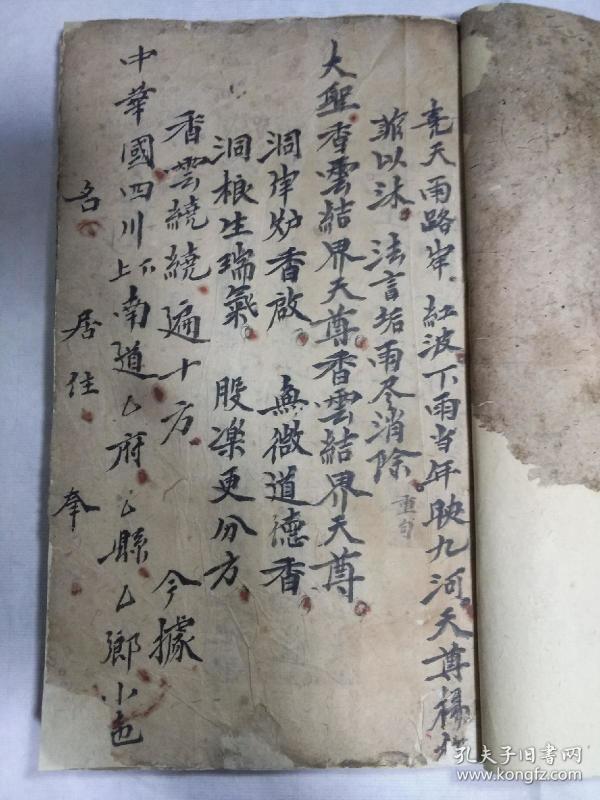 堯天雨路岸 紅波下雨当年映九河天尊楊
以沐 法言垢雨尽消除 重句
大聖香雲結界天尊香雲結界天尊
洞岸炉香啟 無微道德香
洞根生瑞氣 股凓更分方
香雲繞繞遍十方 今據
中華國四川上下南道乙府乙縣乙鄉小地
名 居住 奉
孔夫子旧书网
www.kongfz.com